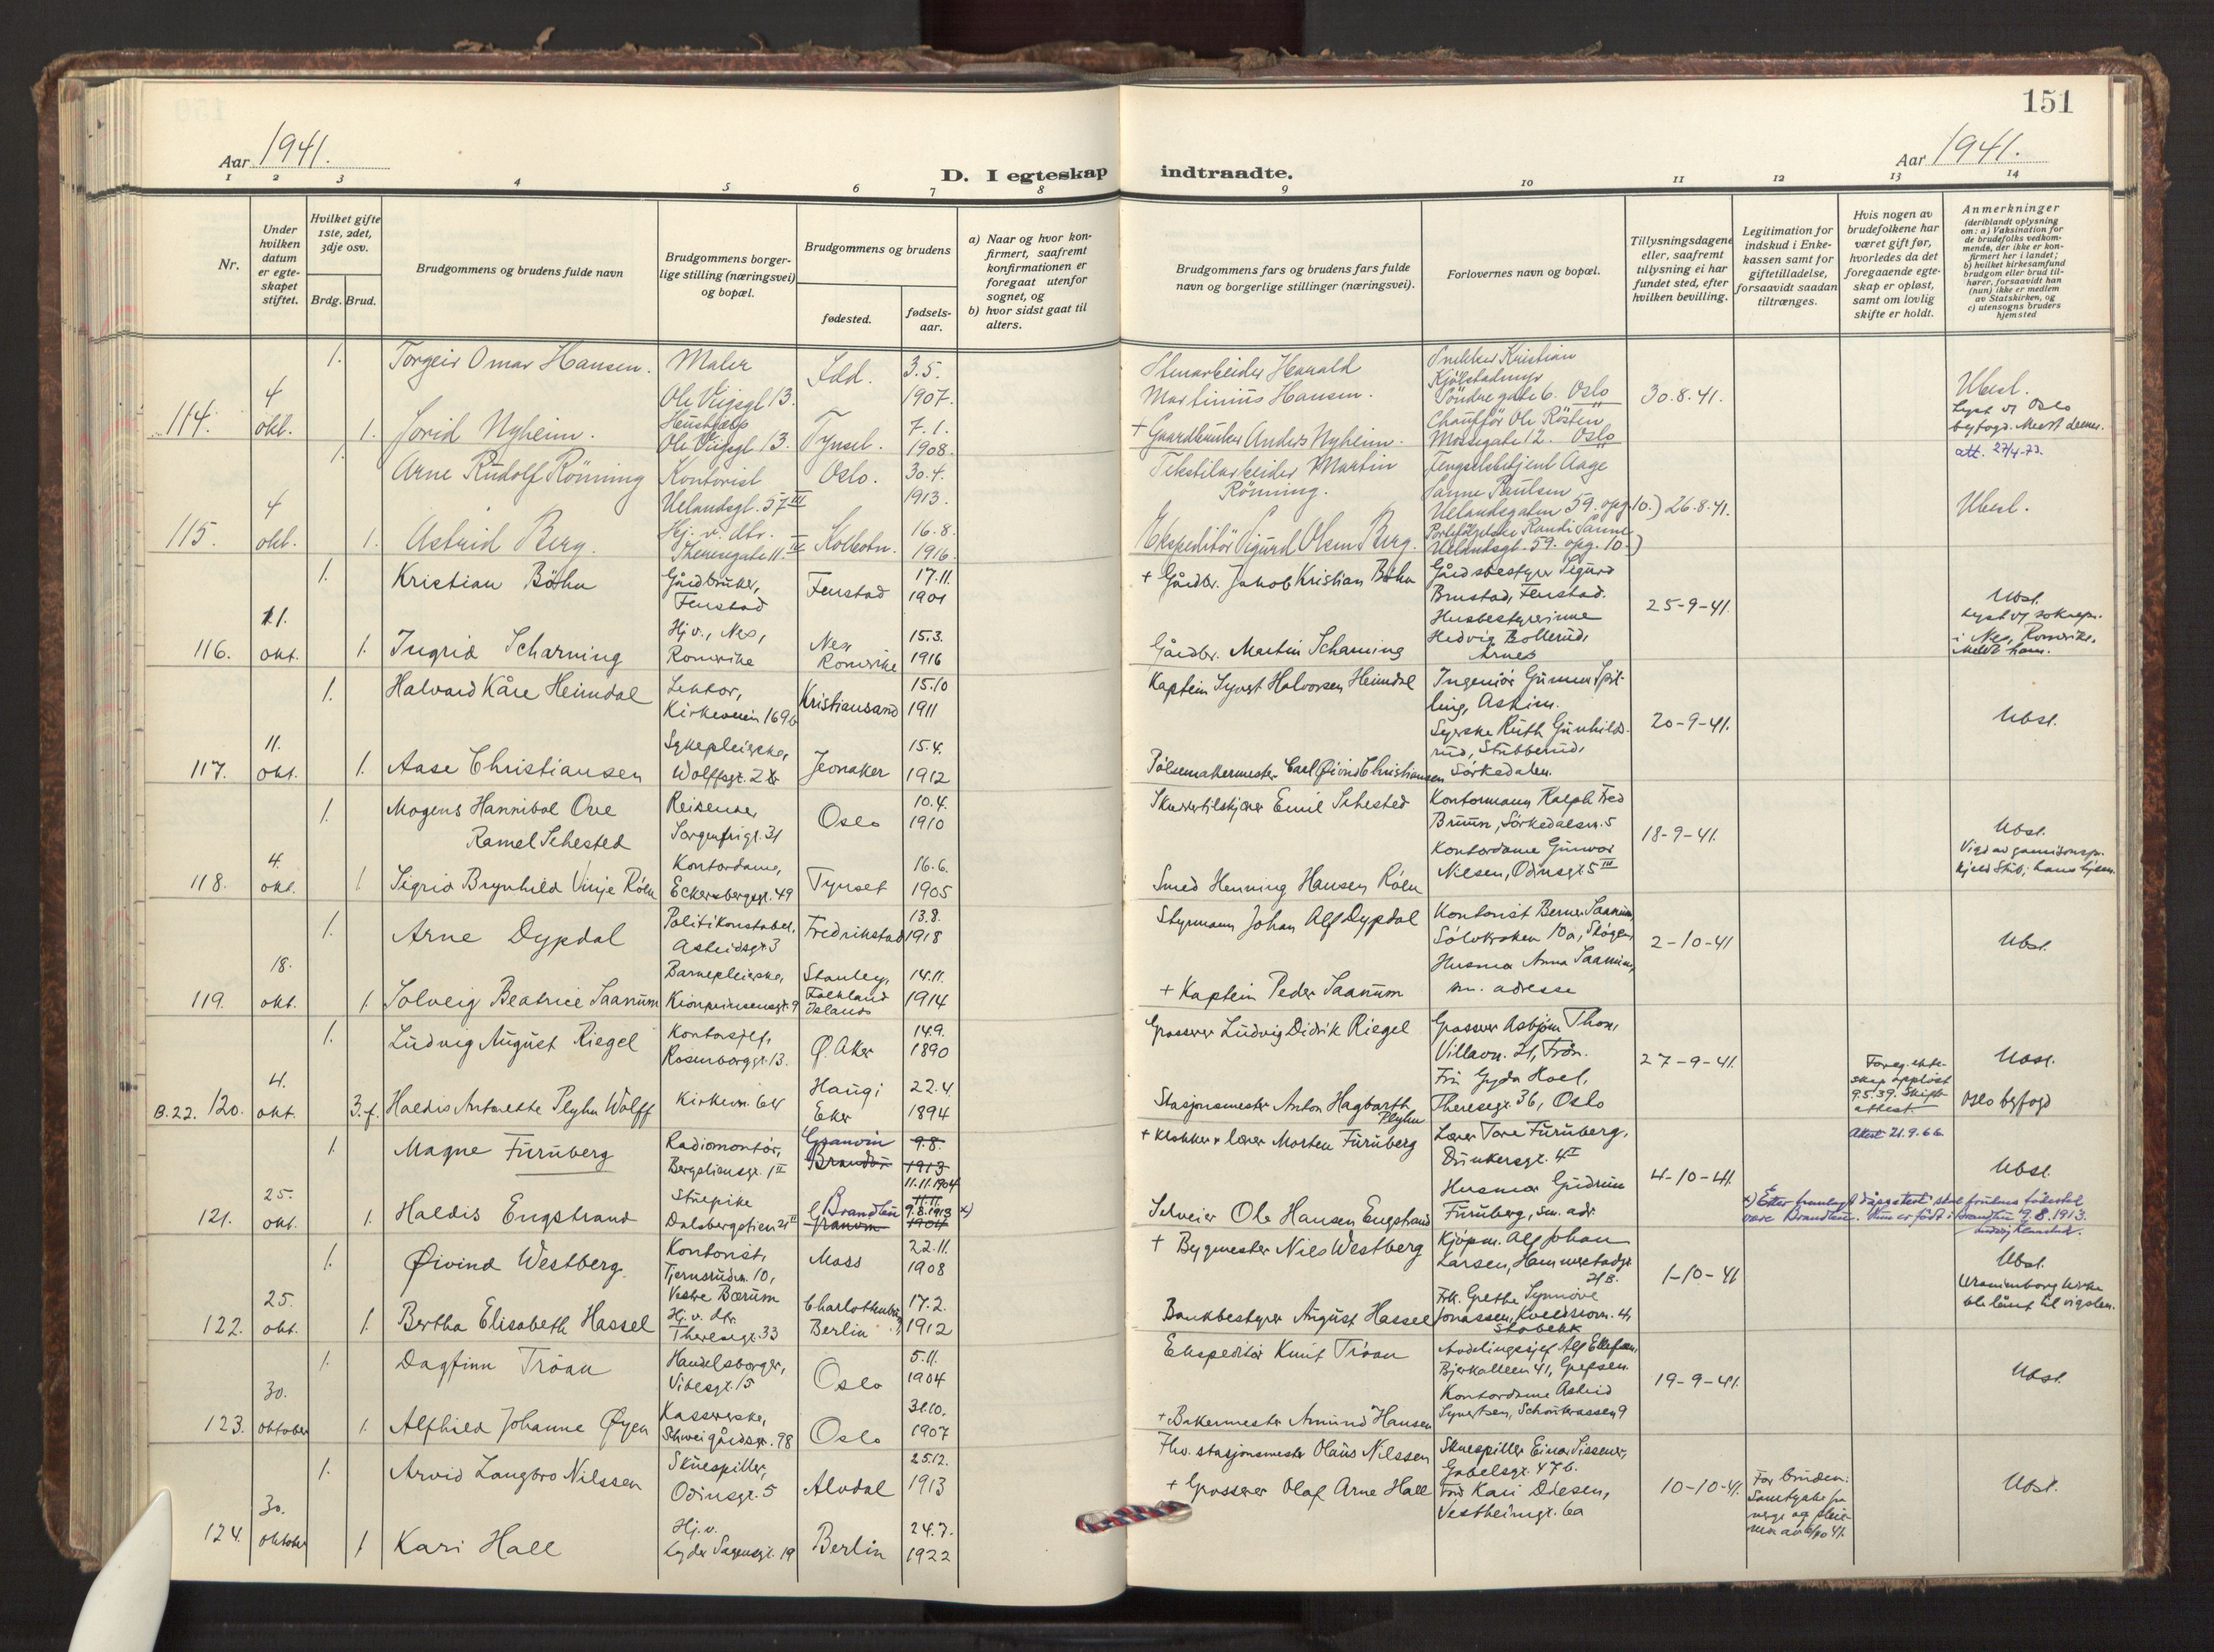 151
Aar 1941.
D. I egteskap indtraadte.
Aar 1941.
1 2 3 4 5 6 7 8 9 10 11 12 13 14
Nr.
Under hvilken datum er egteskapet stiftet.
Hvilket gifte 1ste, 2det, 3dje osv.
Brdg. Brud.
Brudgommens og brudens fulde navn
Brudgommens borgerlige stilling (næringsvei) og bopæl.
Brudgommens og brudens
fødested.
fødselsaar.
a) Naar og hvor konfirmert, saafremt konfirmationen er foregaat utenfor sognet, og
b) hvor sidst gaat til alters.
Brudgommens fars og brudens fars fulde navn og borgerlige stillinger (næringsvei).
Forlovernes navn og bopæl.
Tillysningsdagene eller, saafremt tillysning ei har fundet sted, efter hvilken bevilling.
Legitimation for indskud i Enkekassen samt for giftetilladelse, forsaavidt saadan tiltrænges.
Hvis nogen av brudefolkene har været gift før, hvorledes da det foregaaende egteskap er opløst, samt om lovlig skifte er holdt.
Anmerkninger (deriblandt oplysning om: a) Vaksination for de brudefolks vedkommende, der ikke er konfirmert her i landet; b) hvilket kirkesamfund brudgom eller brud tilhører, forsaavidt han (hun) ikke er medlem av Statskirken, og c) utensogns bruders hjemsted
114. 4 okt.
1. Torgeir Omar Hansen. Maler Ole Vigsgt 13. Idd. 3.5. 1907.
1. Jorid Nyheim. Hushjelp Ole Vigsgt 13. Tynset. 7.1. 1908.
Stenarbeider Harald Martinius Hansen.
+ Gaardbruker Anders Nyheim.
Snekker Kristian Söndregate 6. Oslo
Chauffør Ole Røsten Mossegate 12. Oslo
30.8.41.
Ubesl.
Lyst v Oslo byfogd.
att. 27/4-73.
115. 4 okt.
1. Arne Rudolf Rönning Kontorist Uelandsgt. 57 III Oslo. 30.4. 1913.
1. Astrid Berg. Hj. v. dtr. Theresegate 11 IV Kolbotn. 16.8. 1916.
Tekstilarbeider Martin Rönning.
Ekspeditör Sigurd Olsen Berg.
Fengselsbetjent Aage Sanne Paulsen Uelandsgaten 59. opg. 10.)
Randi Sanne Uelandsgt. 59. opg. 10.)
26.8.41.
Ubesl.
116. 11. okt.
1. Kristian Böhn Gårdbruker, Fenstad Fenstad 17.11. 1901
1. Ingrid Scharning Hj. v., Nes, Romerike Nes Romerike 15.3. 1916
+ Gårdbr. Jakob Kristian Böhn
Gårdbr. Martin Scharning
Gårdsbestyrer Sigurd Brustad, Fenstad.
Husbestyrerinne Hedvig Bollerud, Årnes
25-9-41.
Ubsl.
Lyst v/ soknepr. i Nes, Romerike.
117. 11. okt.
1. Halvard Kåre Heimdal Lektor, Kirkeveien 169b Kristiansand 15.10 1911
1. Aase Christiansen Sykepleierske, Wolffsgt. 2 Jevnaker 15.4. 1912
Kaptein Syvert Halvorsen Heimdal
Pölsemakermester Carl Øivind Christiansen
Ingeniör Gunnar Spilling, Askim.
Syerske Ruth Gunhildsrud, Stubberud, Sörkedalen.
20-9-41.
Ubsl.
118. 4. okt.
1. Mogens Hannibal Ove Ramel Sehested Reisende, Sorgenfrigt. 31 Oslo 10.4. 1910
1 Sigrid Brynhild Vinje Röen Kontordame, Eckersbergsgt. 49 Tynset 16.6. 1905
Skuretilskjærer Emil Sehested
Smed Henning Hansen Röen
Kontormann Ralph Fred Bruun, Sörkedalsv. 5
Kontordame Gunvor Nilsen, Odinsgt 5 III
18-9-41.
Ubsl.
Kjeld Stub, hans hjem.
119. 18. okt.
1. Arne Dypdal Politikonstabel, Astridsgt. 3 Fredrikstad 13.8. 1918
1 Solveig Beatrice Saanum Barnepleierske, Kronprinsensgt. 9 Stanley, Falkland Islands 14.11. 1914
Styrmann Johan Alf Dypdal
+ Kaptein Peder Saanum
Kontorist Berner Saanum, Sölvkroken 10a, Skøyen,
Husmor Anna Saanum, sm. adresse
2-10-41
Ubsl.
B. 22. 120. 4. okt.
1. Ludvig August Riegel Kontorsjef, Rosenborggt. 13. Ø. Aker 14.9. 1890
3.f. Haldis Antonette Plyhn Wolff Kirkevn. 64 Haug i Eker 22.4. 1894
Grosserer Ludvig Didrik Riegel
Stasjonsmester Anton Hagbarth Plyhn
Grosserer Asbjörn Thon, Villavn. 21,
Fru Gyda Hoel, Theresegt. 36, Oslo
27-9-41.
Foreg. ekteskap opplöst 9.5.39. Skifteattest.
Attest 21.9.66.
Ubsl.
Oslo byfogd
121. 25. okt.
1. Magne Furuberg Radiomontör, Bergsliensgt. 1 II Granvin Brandbu 9.8. 1913 11.11.1904
1. Haldis Engstrand Stuepike Dalsbergstien 21 II Brandbu Granvin 11.11. 1904 9.8.1913 x)
+ Klokker & lærer Morten Furuberg
Selveier Ole Hansen Engstrand
Lærer Tore Furuberg, Dunkersgt. 4 I
Husmor Gudrun Furuberg, sm. adr.
4-10-41.
Ubsl.
x) Etter framlagt dåpsattest skal brudens fødested være Brandbu. Hun er født i Brandbu 9.8.1913.
122. 25. okt.
1. Øivind Westberg Kontorist, Tjernsrudvn. 10, Vestre Bærum Moss 22.11. 1908
1. Bertha Elisabeth Hassel Hj. v. dtr. Theresegt. 33 Charlottenburg, Berlin 17.2. 1912
+ Bygmester Nils Westberg
Bankbestyrer August Hassel
Kjöpm. Alf Johan Larsen, Hammerstadgt. 21 B.
Frk. Grethe Synnöve Jonassen, Stabekk
1-10-41
Ubsl.
Uranienborg kirke ble lånt til vigslen.
123. 30. oktober
1. Dagfinn Tröan Handelsborger, Vibesgt. 15 Oslo 5.11. 1904
1. Alfhild Johanne Øyen Kassererske, Schweigårdsgt. 98 Oslo 31.10. 1907
Ekspeditör Knut Tröan
+ Bakermester Amund Hansen
Avdelingssjef Alf Ellefsen, Bjerkealleen 41, Grefsen.
Kontordame Astrid Syvertsen, Schouterrassen 9
19-9-41.
Ubsl.
124. 30. oktober
1. Arvid Langbro Nilssen Skuespiller, Odinsgt. 5 Alvdal 25.12. 1913
1 Kari Hall Hj. v. Lyder Sagensgt. 19 Berlin 24.7. 1922
Fhv. stasjonsmester Olaus Nilssen
+ Grosserer Olaf Arne Hall
Skuespiller Einar Sissener, Gabelsgt. 47b.
Fru Kari Diesen, Vestheimgt. 6a
10-10-41.
For bruden: Samtykke fra verge og
Ubsl.